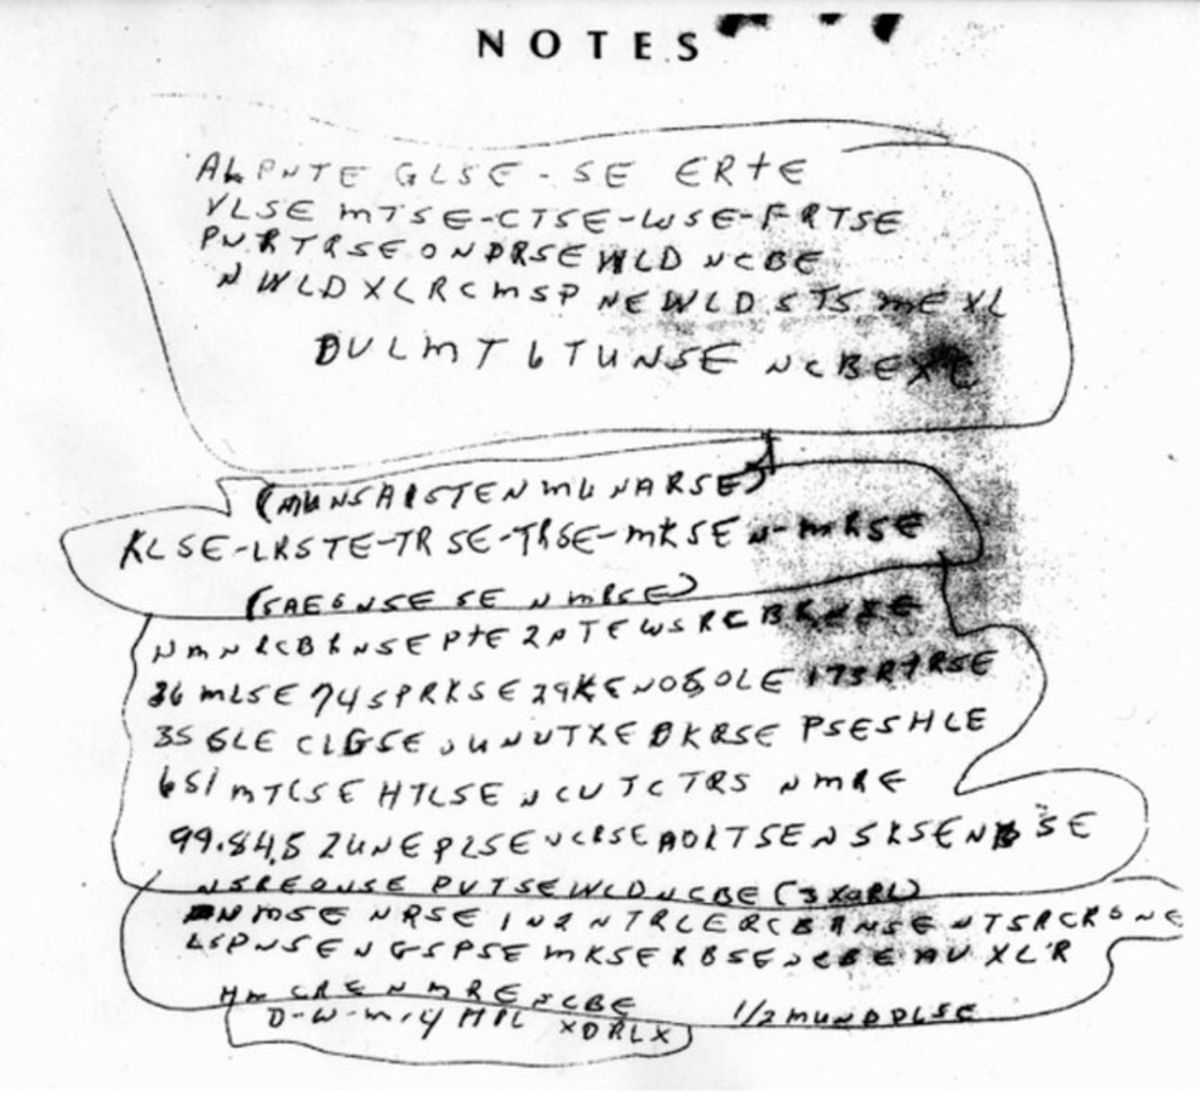 NOTES
ALPNTE GLSE - SE ERTE
VLSE MTSE-CTSE-WSE-FRTSE
PNRTRSEONDRSEWLD NCBE
NWLDXLRCMSP NEWLDSTS MEXL
DULMT6TUNSE NCBEXC
(MUNSAISTENMUNARSE)
KLSE-LRSTE-TRSE-TRSE-MKSEN-MRSE
(SAE6NSESE NMRSE)
NMNRCBRNSEPTE2PTEWSRCBRNSE
36MLSE74SPRKSE29KENOSOLE173RTRSE
35GLE CLGSE UNUTXE DKRSE PSESHLE
651MTCSE HTLSE NCUTCTRS NMRE
99.84.5 2UNEPLSE NCRSE AOLTSENSKSENBSE
NSREONSE PUTSEWLDNCBE(3XORL)
NMSE NRSE IN2NTRLERCBRNSE NTSRCRONE
LSPNSENGSPSE MKSERBSENCBE AUXLR
HMCRENMRENCBE
1/2MUNDDLSE
D-W-M-4 MPL XDRLX